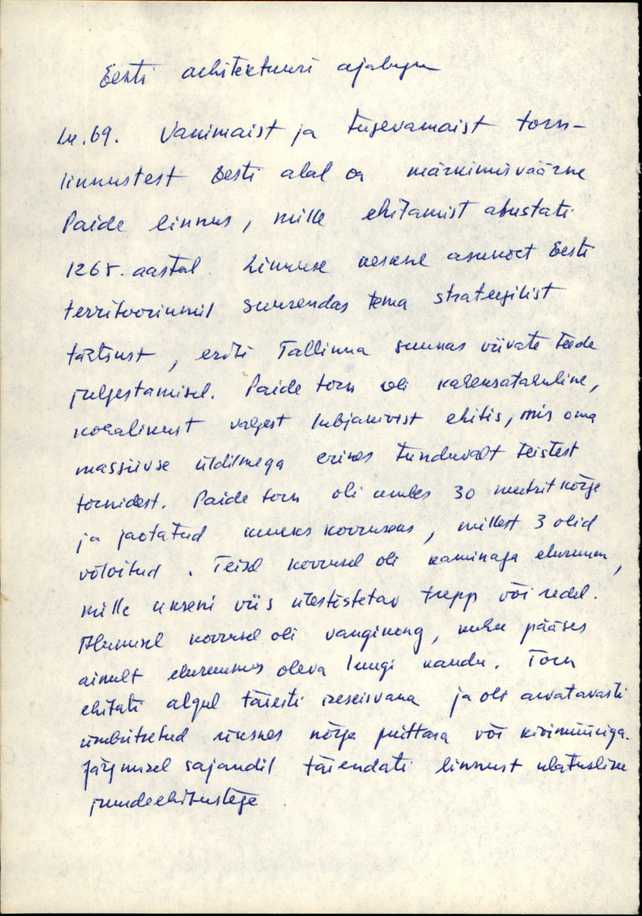 Eesti arhitektuuri ajalugu
Lk. 69. Vanimaist ja tugevamaist torn-
linnustest Eesti alal on märkimisväärne
Paide linnus, mille ehitamist alustati
1265. aastal. Linnuse keskne asukoht Eesti
territooriumil suurendas tema strateegilist
tähtsust, eriti Tallinna suunas viivate teede
julgestamisel. Paide torn oli kaheksatahuline,
kohalikust valgest lubjakivist ehitis, mis oma
massiivse üldilmega erines tunduvalt teistest
tornidest. Paide torn oli umbes 30 meetrit kõrge
ja jaotatud kuueks korruseks, millest 3 olid
võlvitud. Teisel korrusel oli kaminaga eluruum,
mille ukseni viis ülestõstetav trepp või redel.
Alumisel korrusel oli vangikong, kuhu pääses
ainult eluruumis oleva luugi kaudu. Torn
ehitati algul täiesti iseseisvana ja oli arvatavasti
ümbritsetud üksnes kõrge puittara või kivimüüriga.
Järgmisel sajandil täiendati linnust ulatuslike
juurdeehitustega